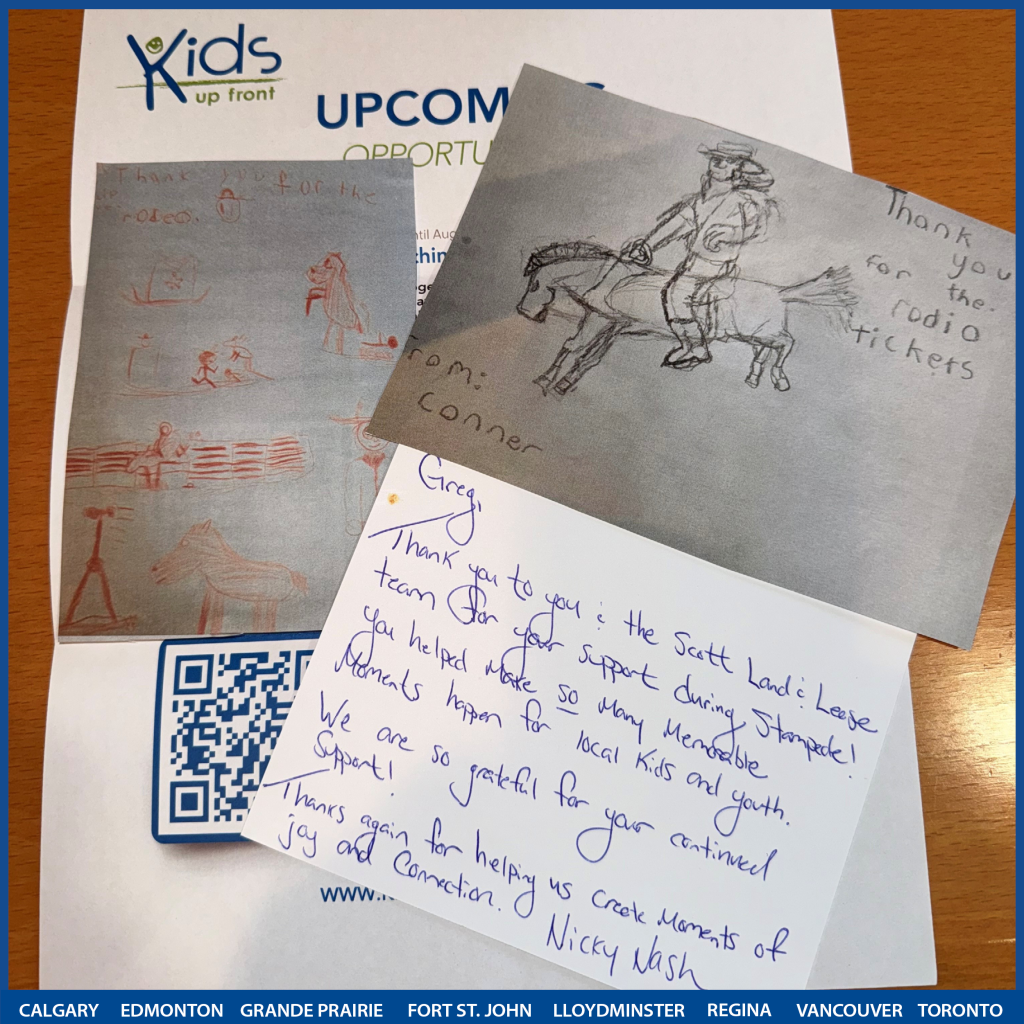 Kids
up front
UPCOM
OPPORTU
Thank you for the
rodeo.
ntil Aug
thin
Thank
you
for the.
rodio
tickets
rom:
Conner
Greg,
Thank you to you & the Scott Land & Lease
team for your support during Stampede!
You helped make so many memorable
moments happen for local kids and youth.
We are so grateful for your continued
support!
Thanks again for helping us create moments of
joy and connection.
Nicky Nash
www.
CALGARY EDMONTON GRANDE PRAIRIE FORT ST. JOHN LLOYDMINSTER REGINA VANCOUVER TORONTO